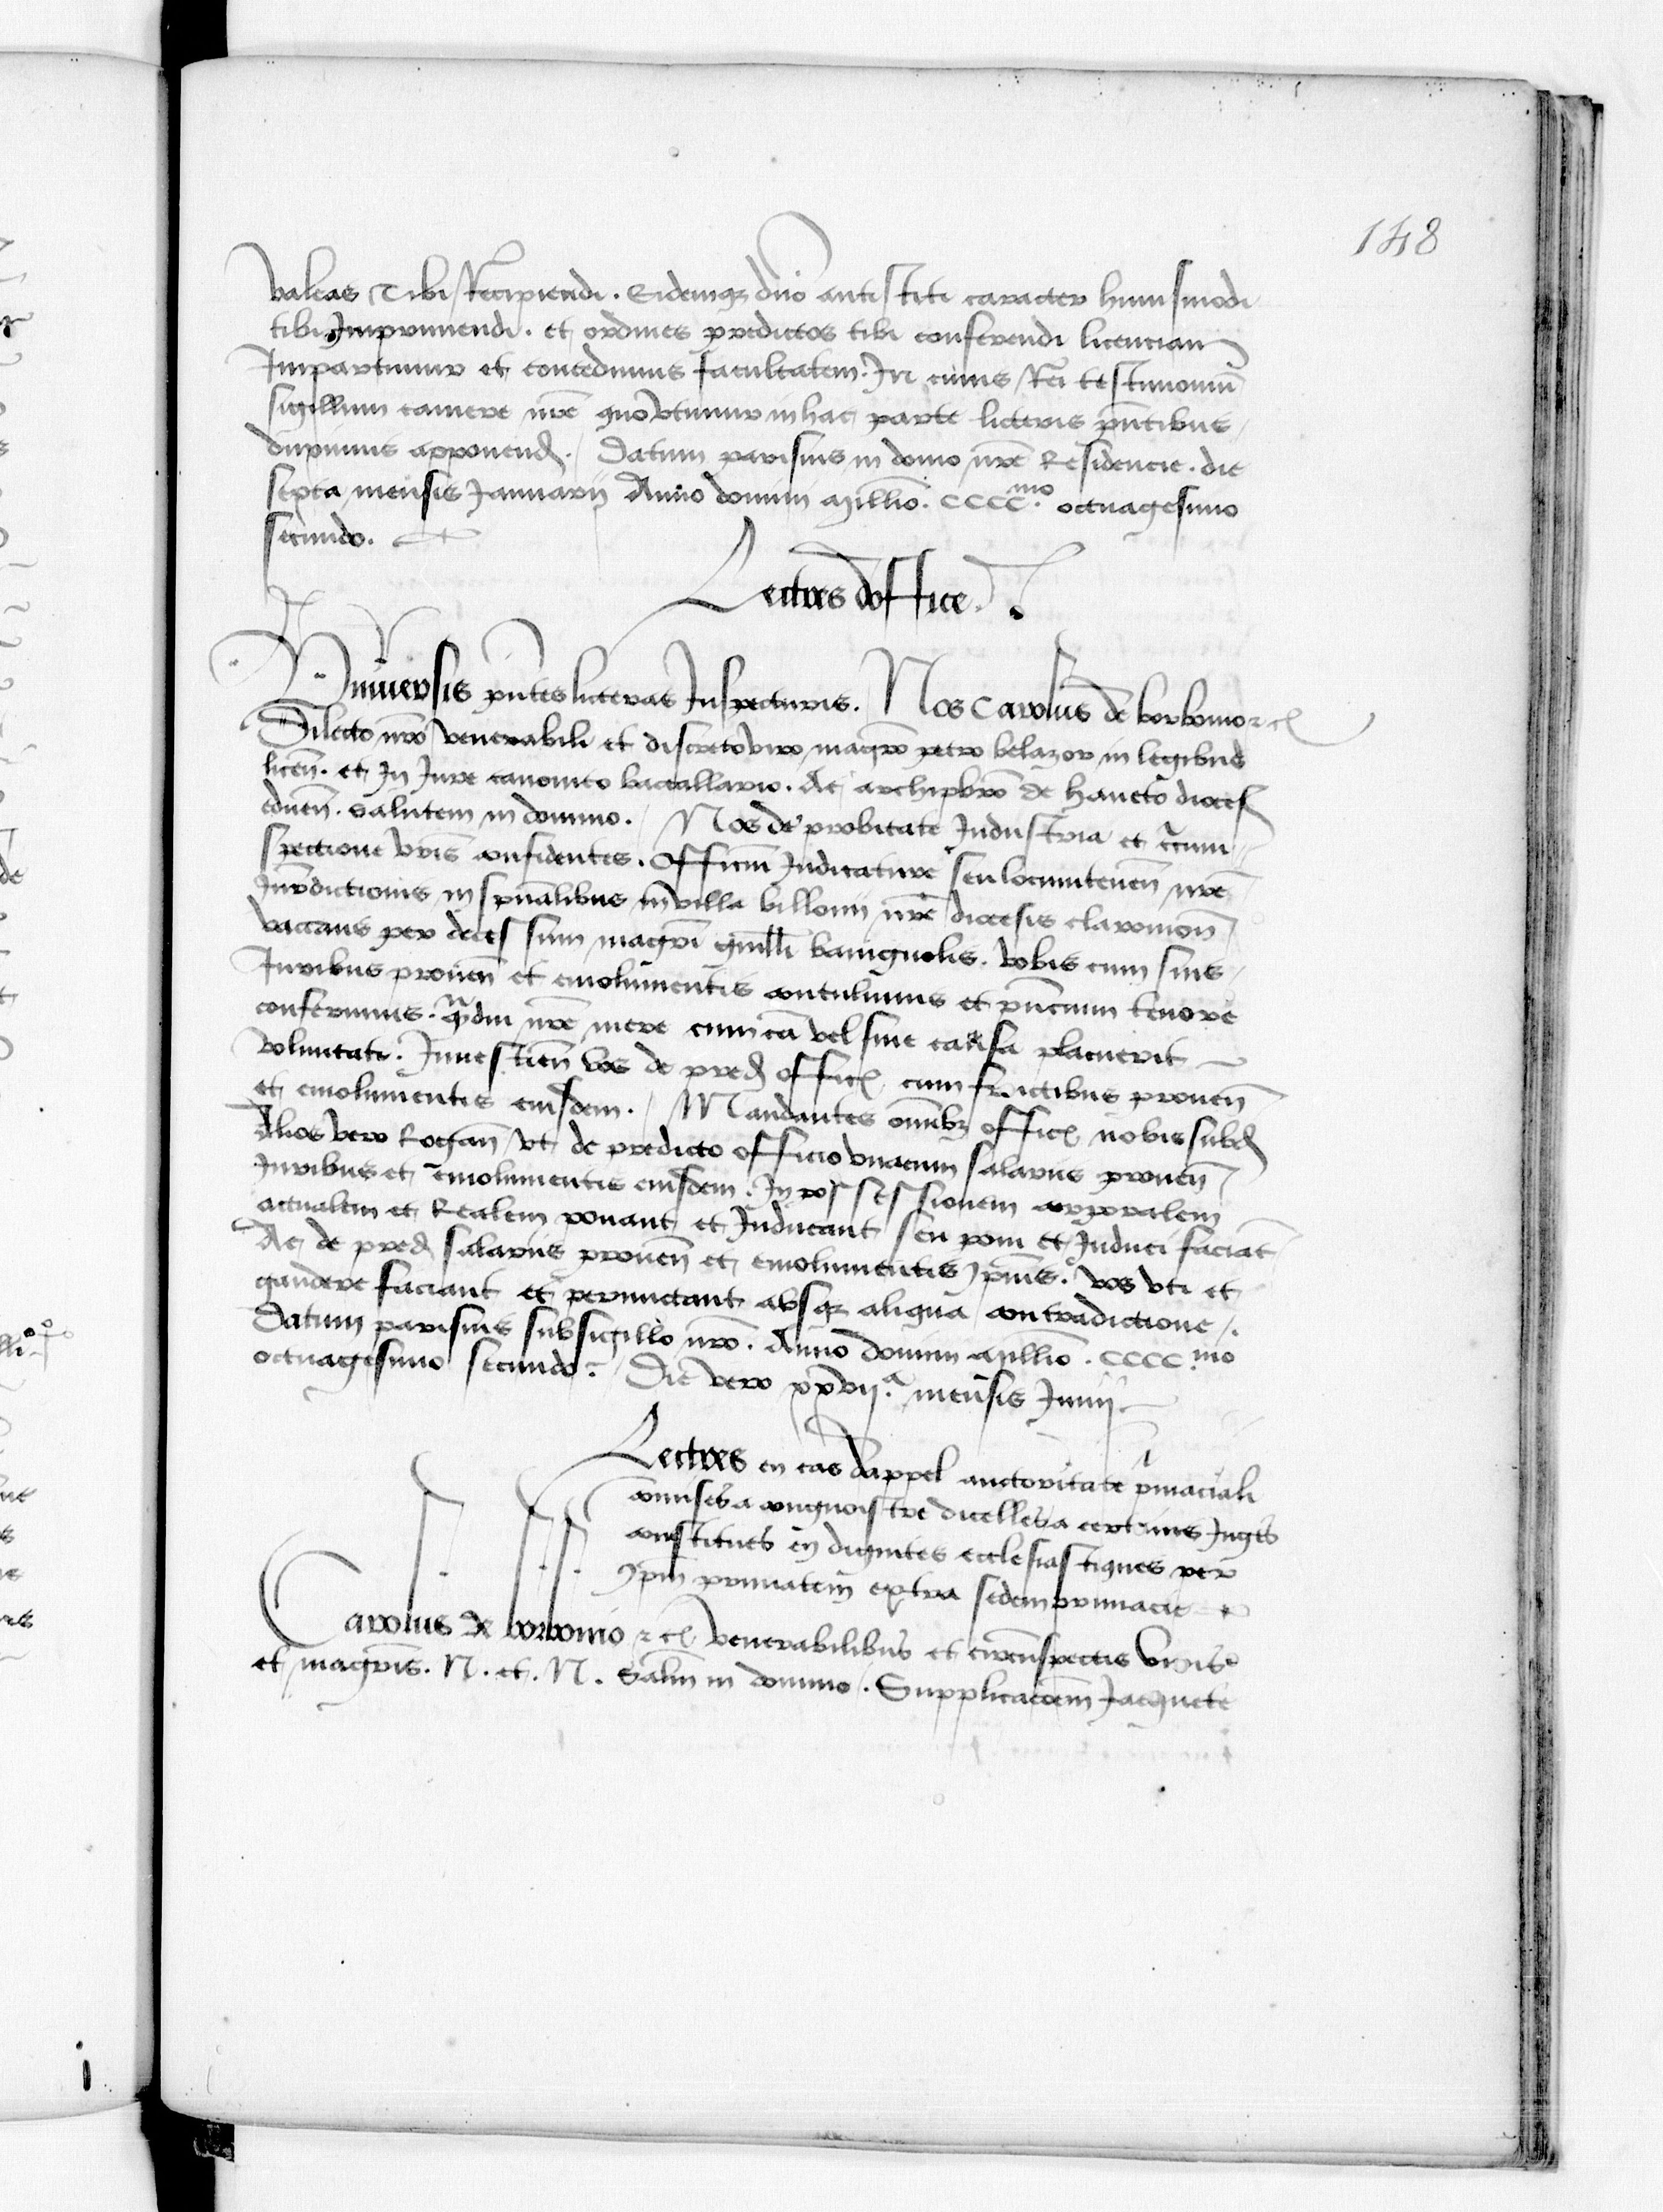 148
valeas Tibi Recipiendi. Eidemq₃ dño antistiti caracter huiusmodi
tibi Imprimendi. et ordines predictos tibi conferendi licenciam
Impartimur et concedimus facultatem. In cuius Rei testimoniũ
sigillum camere nr̃e quo vtimur in hac parte licteris pñtibus
duximus apponend. Datum parisius in domo nr̃e Residencie. die
septa mensis Januarij Anno domini millio̅. CCCC.mo octuagesimo
secundo.
Lectres doffice.
Vniuersis pñtes licteras Inspecturis. Nos Carolus de borbonio etc̃
Dilecto nr̃o venerabili et discreto viro magr̃o petro belazor in legibus
liceñ. et In Jure canonico baccallario. Ac archipbr̃o de haneto dioces̃
edueñ. salutem in domino. Nos de probitate Industria et circum
spectione vr̃is confidentes. Officiũ Judicature seu locumteneñ nr̃e
Jurẽdictionis in spũalibus in villa billonij nr̃e diocesis claromoñ
vaccans per decessum magr̃i guill̃i banignolis. vobis cum suis
Juribus proueñ et emolumentis contulimus et pñcium tenore
conferimus. q̃diu nr̃e mere cum cã vel sine causa placuerit
voluntati. Inuestieñ vos de pred̃ offic̃ cum fructibus proueñ
et emolumentis eiusdem. Mandantes omĩb₃ offic̃ nobis subd̃
Alios vero Rogañ vt de predicto officio vnacum salariis proueñ
Juribus et emolumentis eiusdem. In possessionem corporalem
actualem et Realem ponant et Inducant seu poni et Induci faciãt
Ac de pred̃ salariis proueñ et emolumentis vos vti et
gaudere faciant et permictant absq₃ aliqua contradictione.
Datum parisius sub sigillo nr̃o. Anno domini millio̅. CCCC.mo
octuagesimo secundo. Die vero xxvij.a mensis Junij
Lectres en cas dappel auctoritate p̃maciali
comises a congnoistre dicelles a certains Juges
constitues en dignites ecclesiastiques per
Ip̃m primatem extra sedem primacie
Carolus de borbonio etc̃ venerabilibus et circũspectis viris
et magr̃is. N. et. N. Salm̃ in domino. Supplicacioem̃ Jaquete